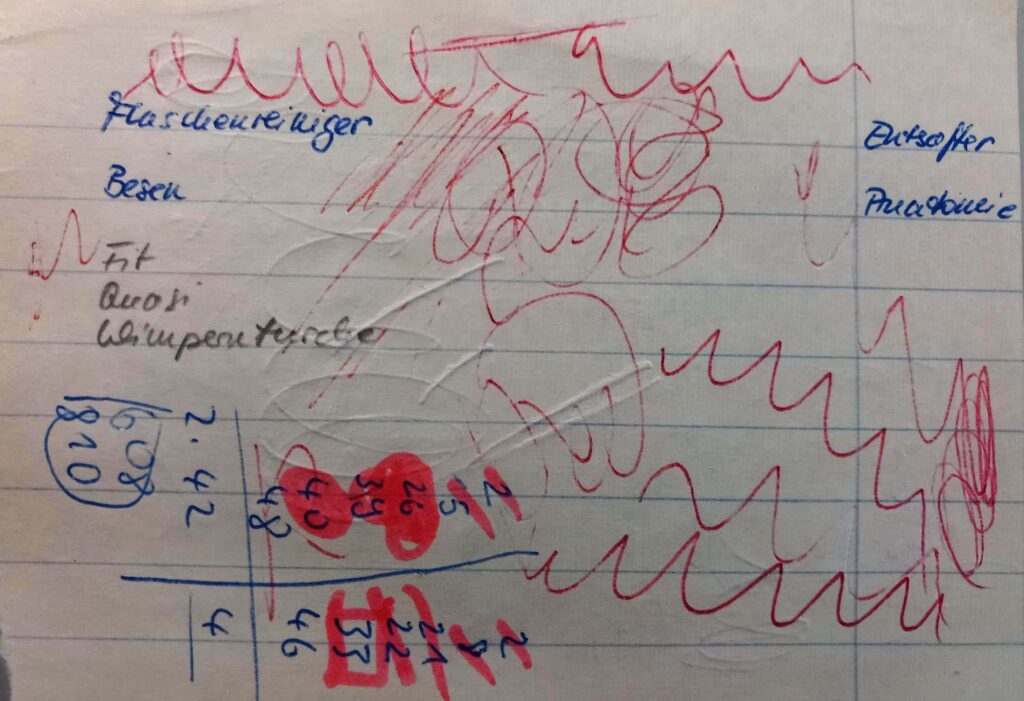 Flaschenreiniger
Entsafter
Besen
Anatomie
Fit
Quasi
Wimperntusche
2 2
8
26 21
39 22
40 33
48 46
2. 42 4
608
810